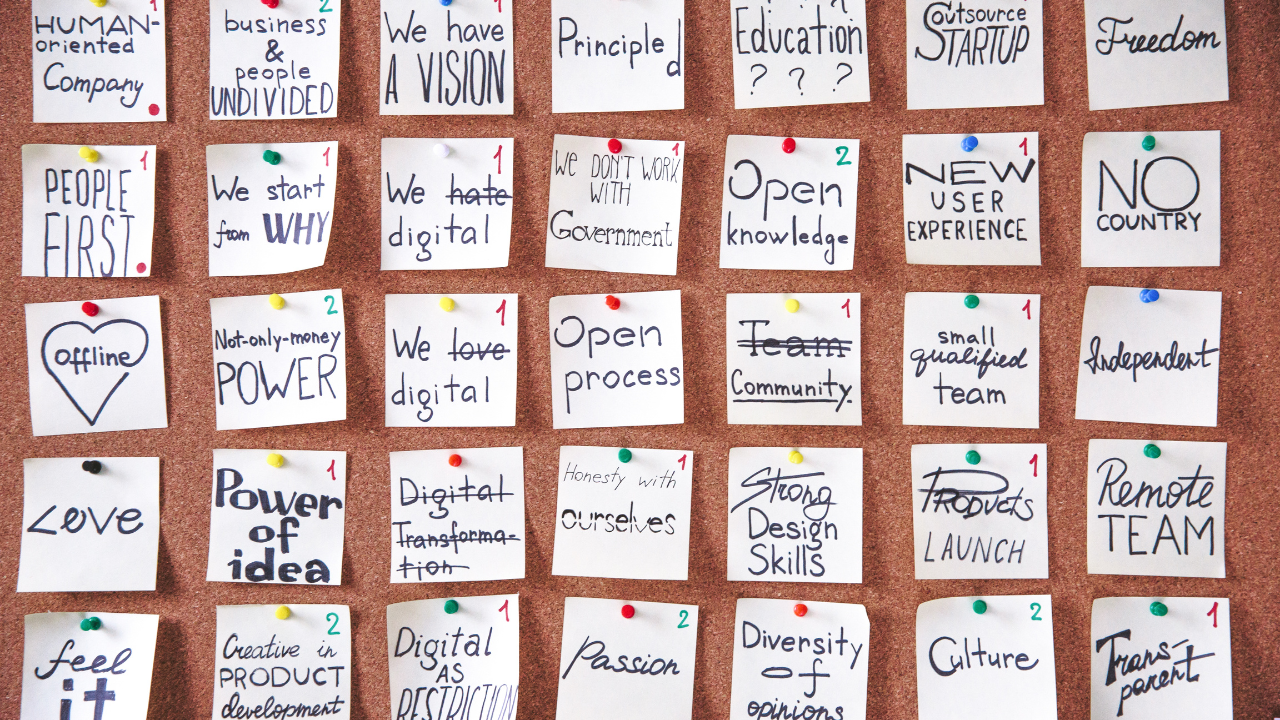 HUMAN-
oriented
Company
1
business
&
people
UNDIVIDED
2
We have
A VISION
1
Principled
Education
? ? ?
Outsource
STARTUP
Freedom
PEOPLE
FIRST.
1
We start
from WHY
1
We hate
digital
1
WE DON'T WORK
WITH
Government
1
Open
knowledge
2
NEW
USER
EXPERIENCE
1
NO
COUNTRY
offline
Not-only-money
POWER
2
We love
digital
1
Open
process
Team
Community
1
small
qualified
team
1
Independent
Love
Power
of
idea
1
Digital
Transforma-
tion
Honesty with
ourselves
1
Strong
Design
Skills
PRODUCTS
LAUNCH
1
Remote
TEAM
feel
it
Creative in
PRODUCT
development
2
Digital
AS
RESTRICTION
1
Passion
2
Diversity
of
opinions
Culture
2
Trans-
parent
1